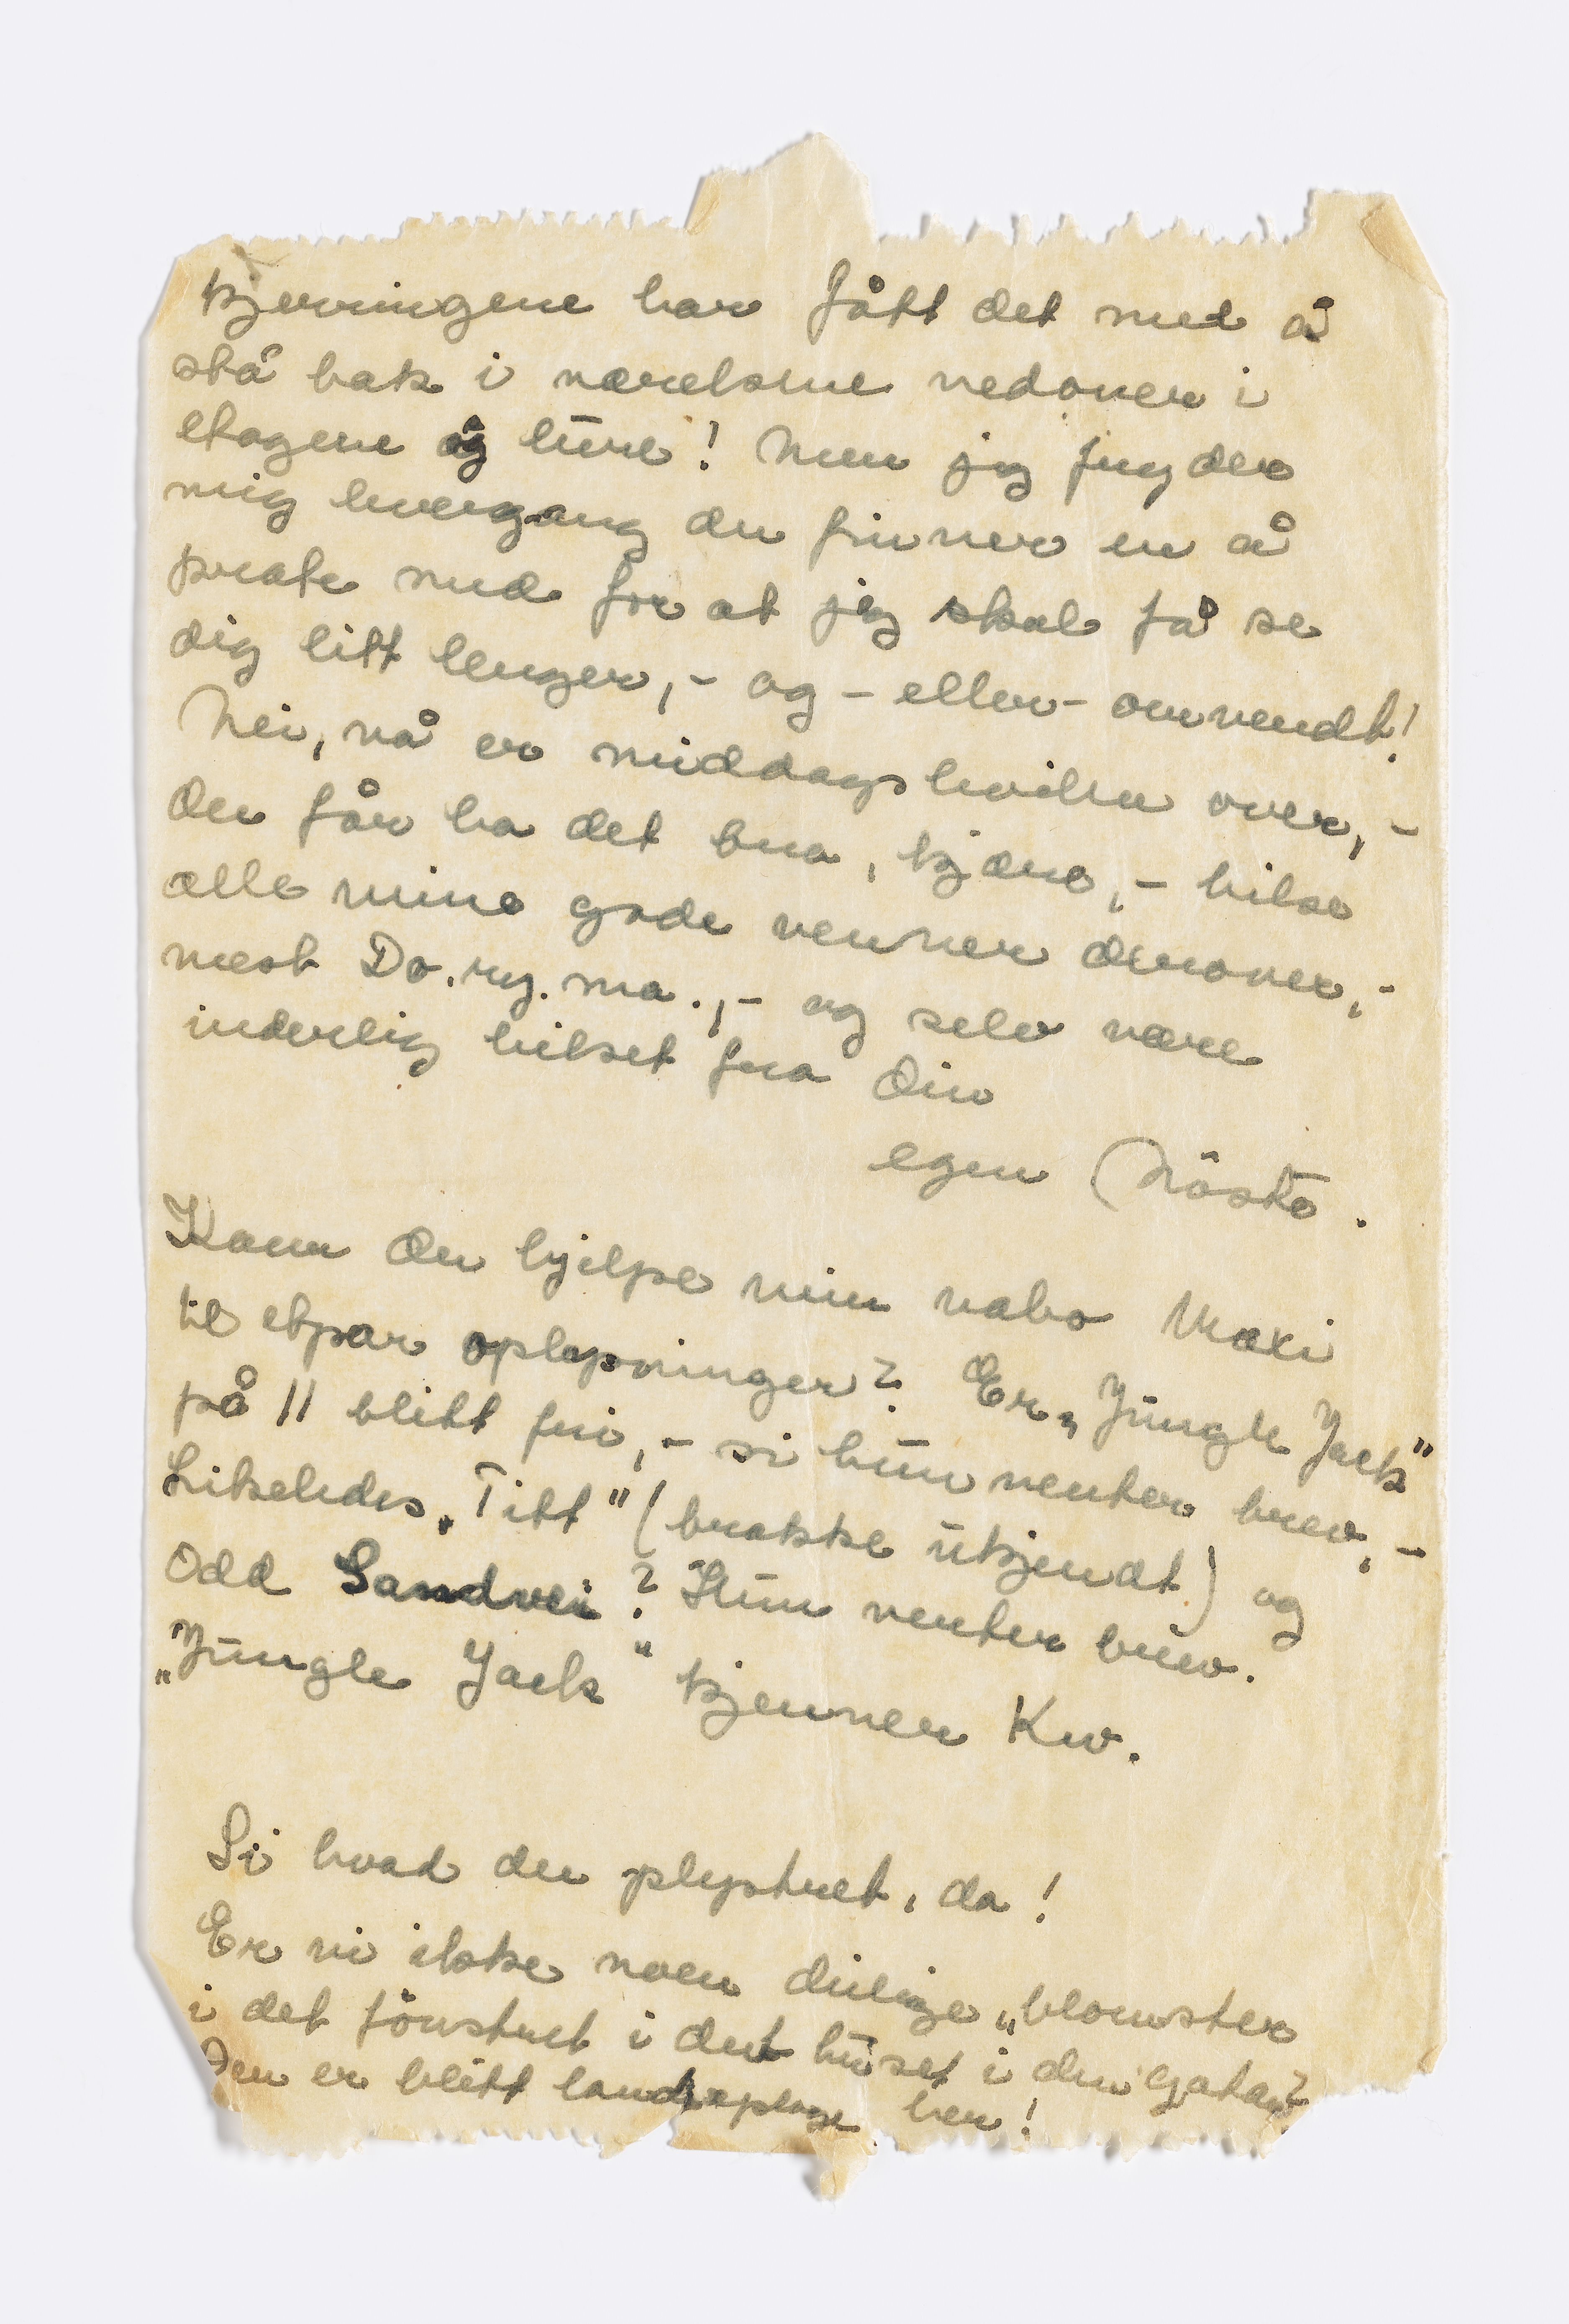 kjerringene har fått det med å
stå bak i værelsene nedover i
etagene og lure! Men jeg fryder
mig hvergang du finner en å
prate med for at jeg skal få se
dig litt lenger, - og - eller - omvendt!
Nei, nå er middagshvilen over, -
Du får ha det bra, kjære, - hilse
alle mine gode venner derover, -
mest Do. ry. ma., - og selv være
inderlig hilset fra Din
egen Nöste.
Kann du hjelpe min nabo Maxi
til etpar oplysninger? Er „Jungle Jack"
på 11 blitt fri, - si hun venter brev, -
Likeledes „Titt" (brakke ukjendt) og
Odd Sandvei? Hun venter brev.
„Jungle Jack" kjenner Kv.
Si hvad du plystret, da!
Er vi ikke noen deilige „blomster
i det fönstret i det huset i den gatan"?
Den er blitt landeplage her!